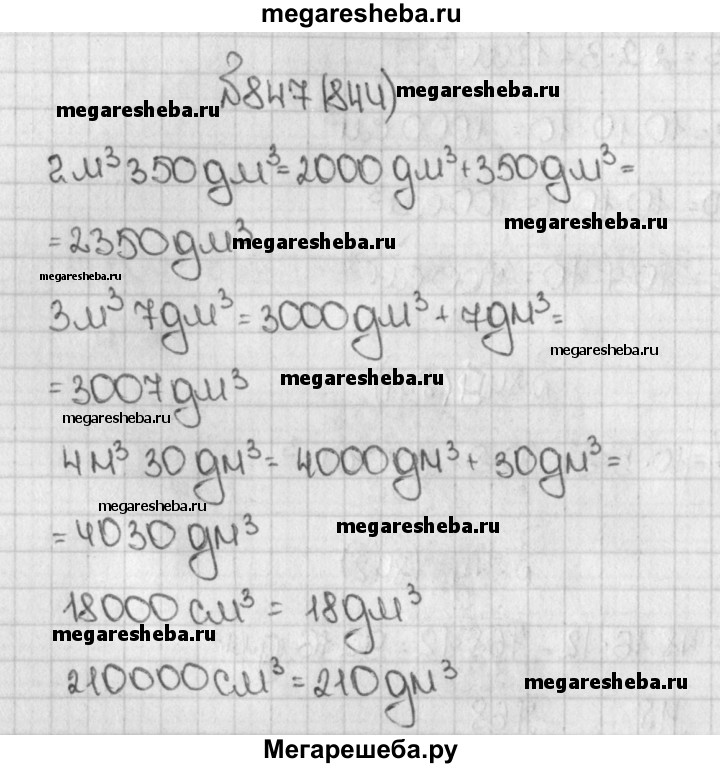 megaresheba.ru
№847(844)
megaresheba.ru
megaresheba.ru
2м³ 350дм³=2000дм³+350дм³=
megaresheba.ru
=2350дм³
megaresheba.ru
megaresheba.ru
3м³ 7дм³=3000дм³+7дм³=
megaresheba.ru
=3007дм³
megaresheba.ru
megaresheba.ru
4м³ 30дм³=4000дм³+30дм³=
megaresheba.ru
=4030дм³
megaresheba.ru
18000см³=18дм³
megaresheba.ru
210000см³=210дм³
megaresheba.ru
Мегарешеба.ру